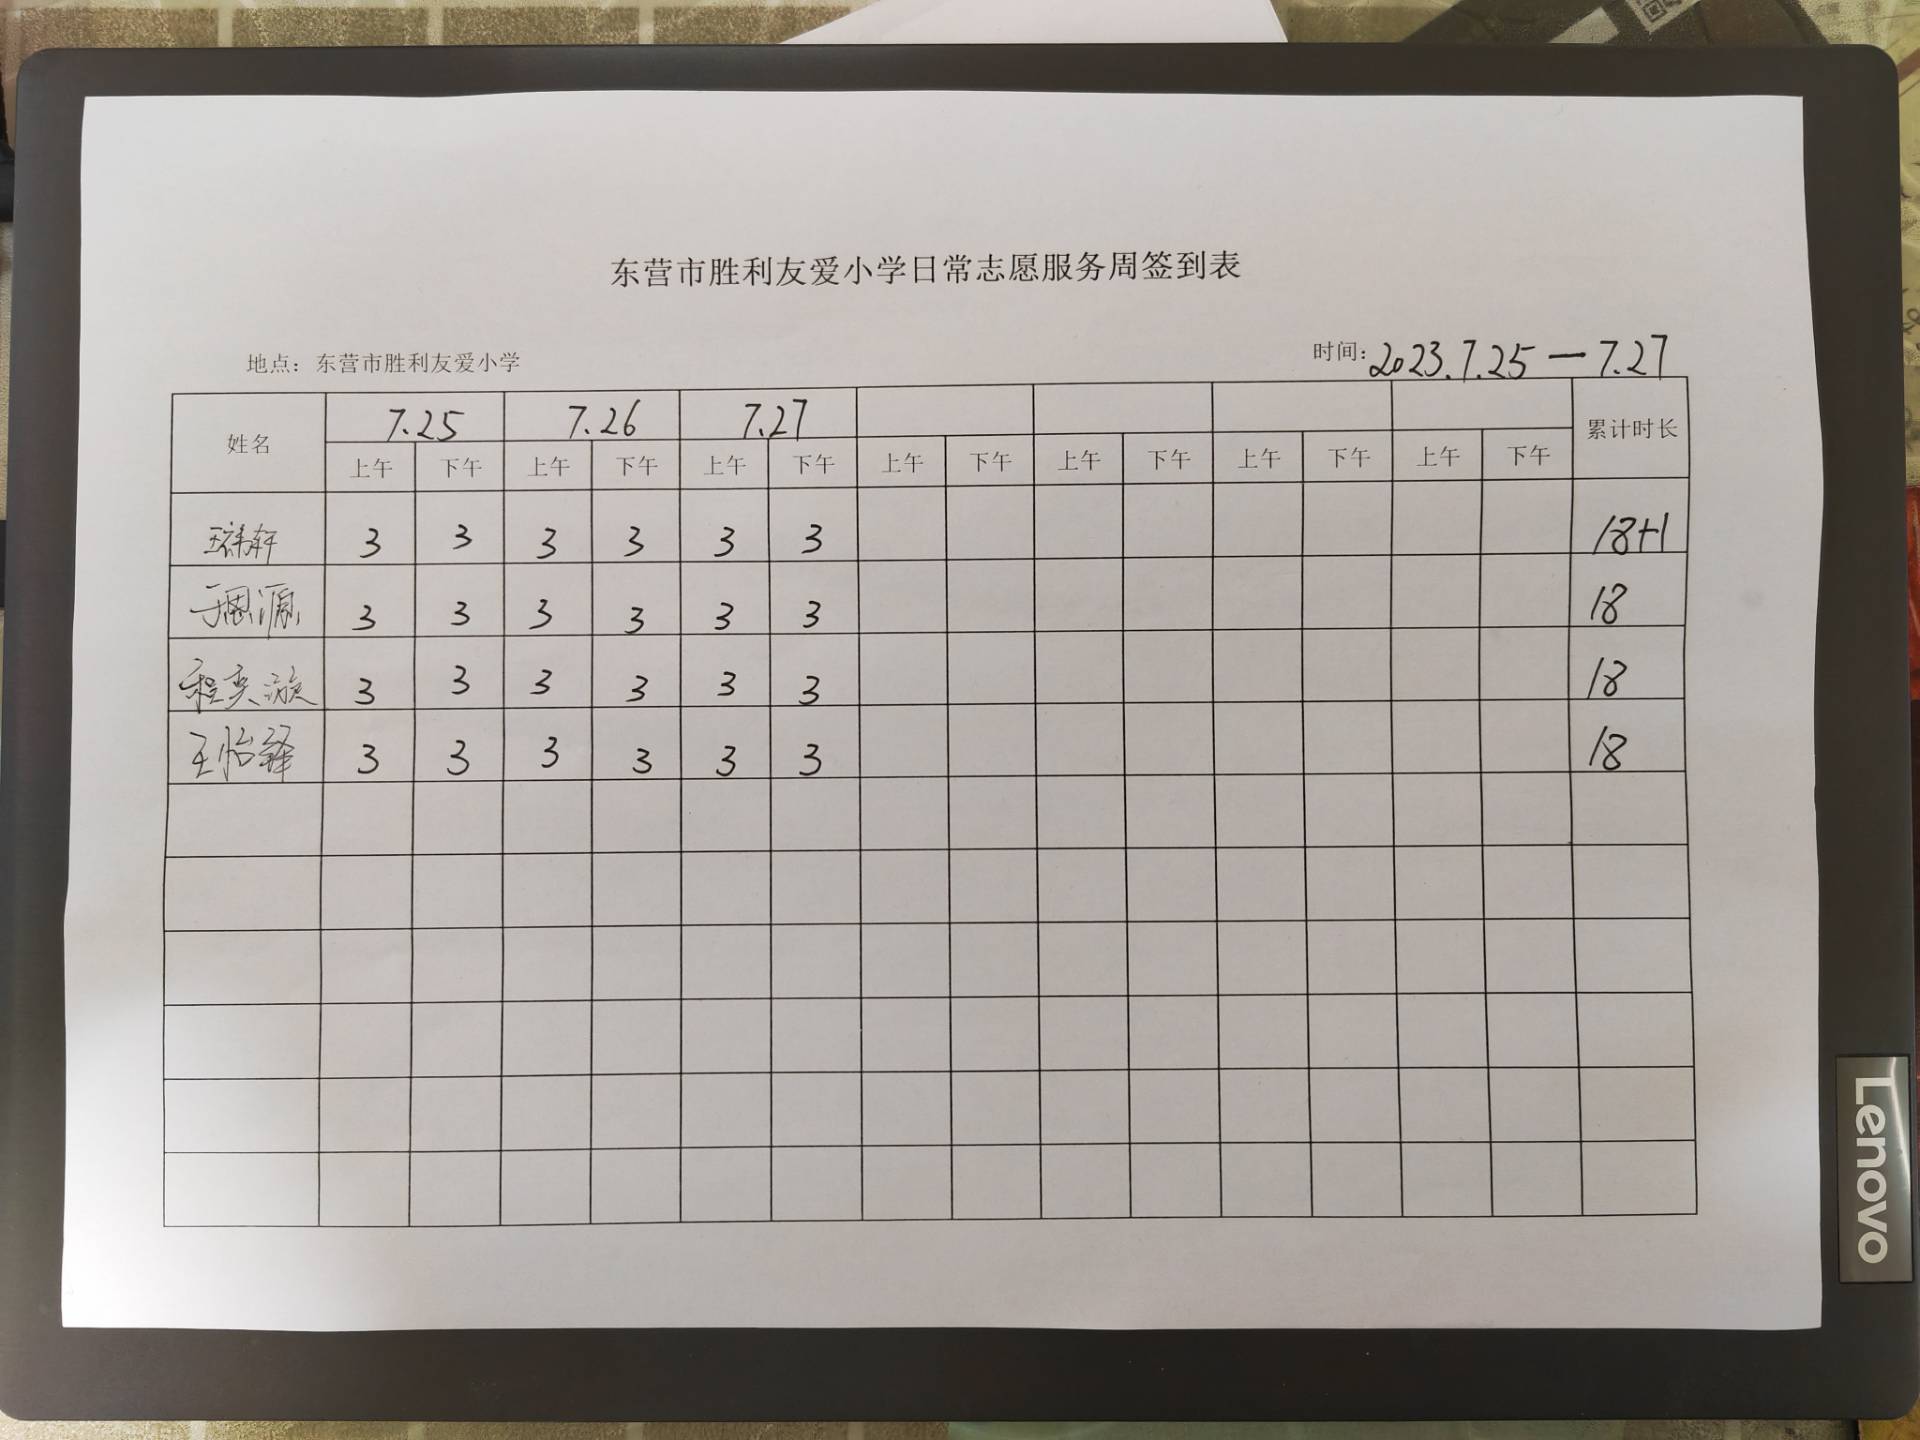 东营市胜利友爱小学日常志愿服务周签到表
地点：东营市胜利友爱小学 时间：2023.7.25—7.27
姓名 7.25 7.26 7.27 累计时长
上午 下午 上午 下午 上午 下午 上午 下午 上午 下午 上午 下午 上午 下午
王祎轩 3 3 3 3 3 3 18+1
于恩源 3 3 3 3 3 3 18
程奕漩 3 3 3 3 3 3 18
王怡铎 3 3 3 3 3 3 18
Lenovo